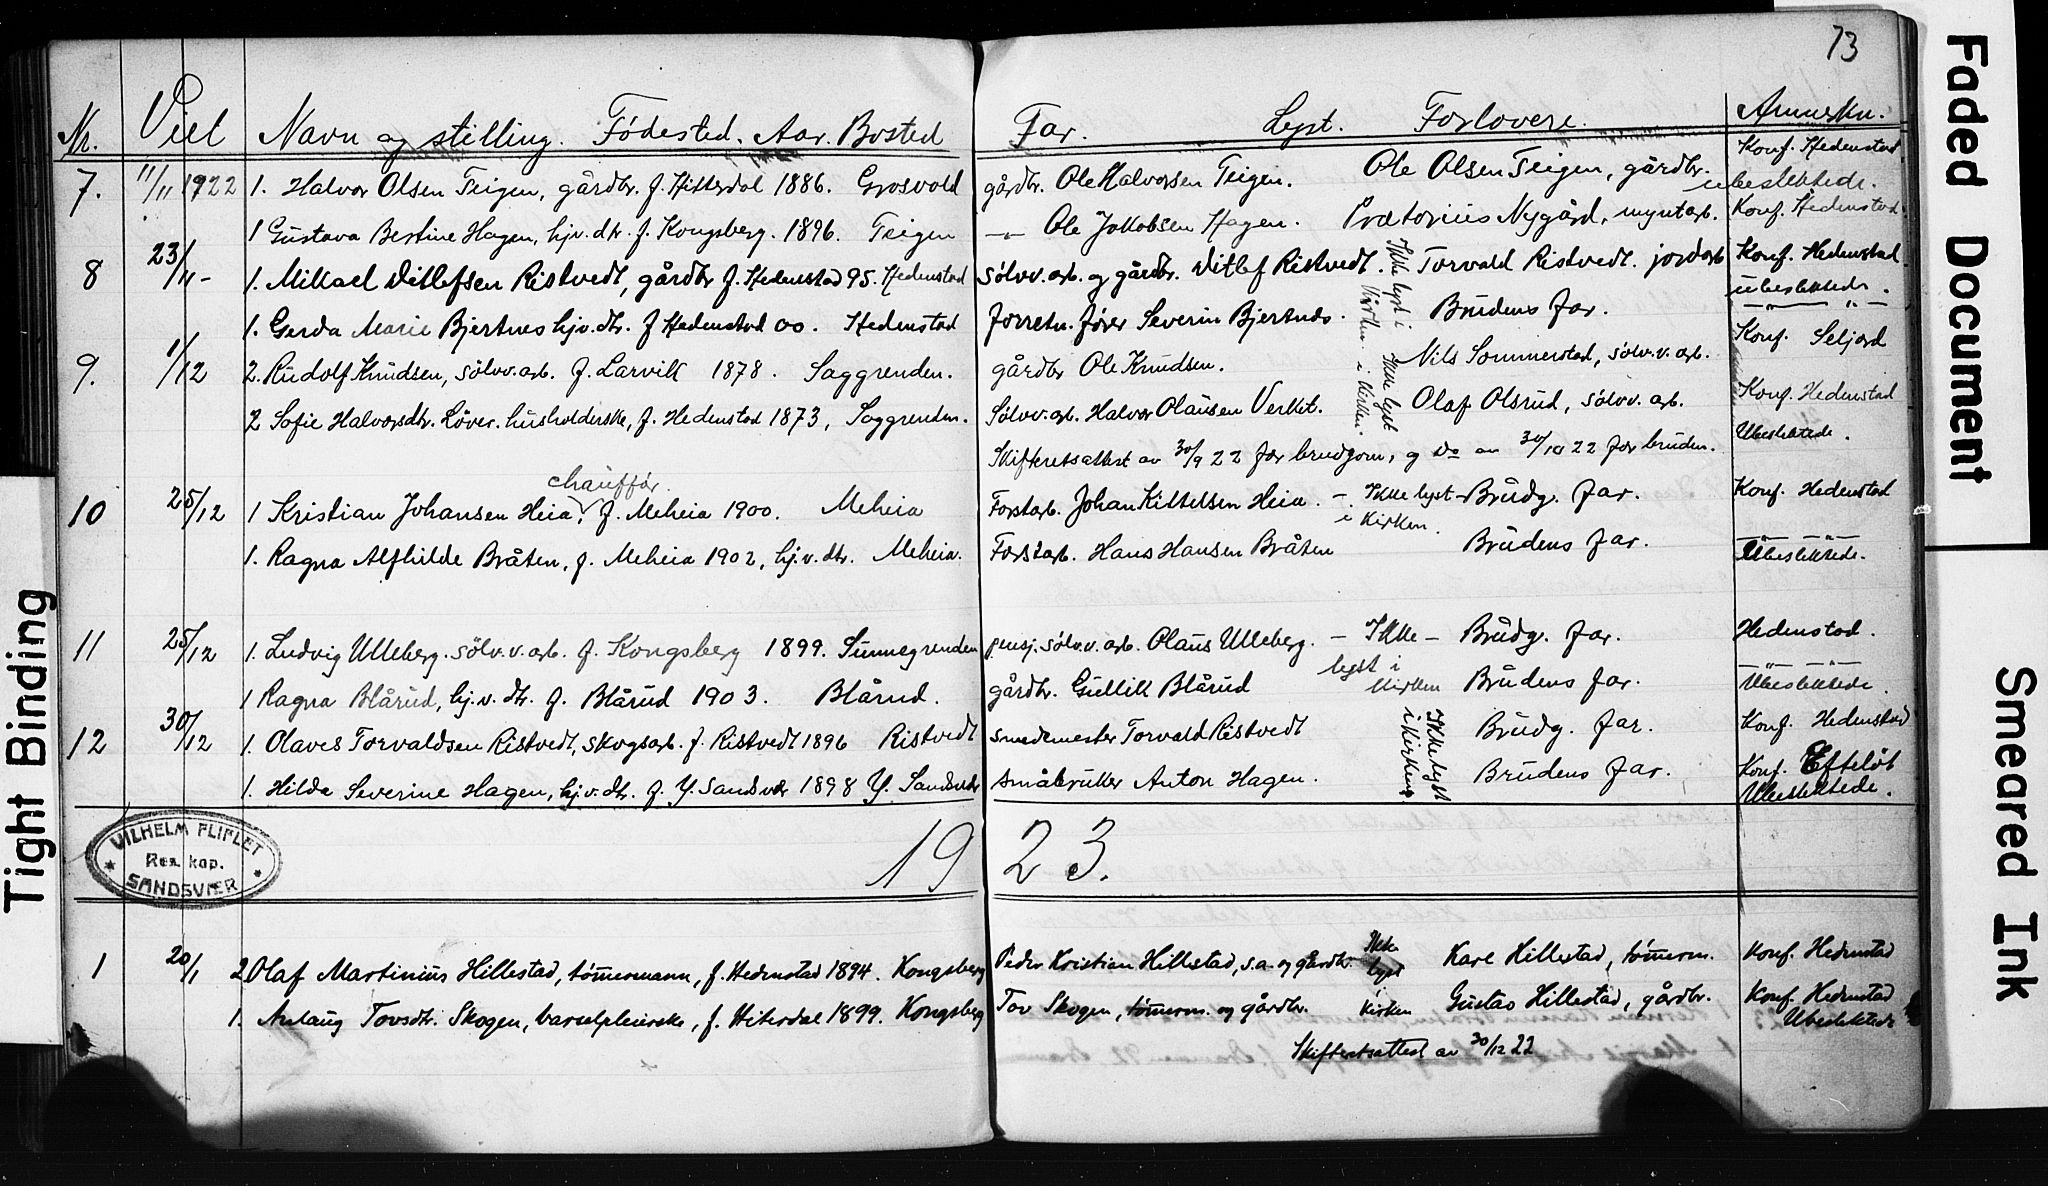 73
Nr. Viet Navn og stilling. Fødested. Aar. Bosted Far. Lyst. Forlovere. Anmerkn.
7. 11/11 1922 1. Halvor Olsen Teigen, gårdbr. f. Hitterdal 1886. Grosvold gårdbr. Ole Halvorsen Teigen. Ole Olsen Teigen, gårdbr. Konf. Hedenstad
ubeslektede.
1 Gustava Bertine Hagen, hjv. dtr. f. Kongsberg. 1896. Teigen -"- Ole Jakobsen Hagen. Prætorius Nygård, myntarb. Konf. Hedenstad.
8 23/11- 1. Mikael Ditlefsen Ristvedt, gårdbr f. Hedenstad 95. Hedenstad sølvv. arb. og gårdbr. Ditlef Ristvedt. Ikke lyst i kirken Torvald Ristvedt. jordarb Konf. Hedenstad
ubeslektede.
1. Gerda Marie Bjertnes hjv. dtr. f Hedenstad 00. Hedenstad forretn. fører Severin Bjertnes. Brudens far. -"- "-
9. 1/12 2. Rudolf Knudsen, sølvv. arb. f. Larvik 1878. Saggrenden. gårdbr Ole Knudsen. Ikke lyst i kirken Nils Sommerstad, sølv. v. arb. Konf. Seljord
2 Sofie Halvorsdtr. Løver. husholderske, f. Hedenstad 1873, Saggrenden. Sølvv. arb. Halvor Olausen Verket. Olaf Olsrud, sølvv. arb. Konf. Hedenstad
Ubeslektede.
Skifteretsattest av 30/9 22 for brudgom, og do av 30/10 22 for bruden.
chauffør
10 25/12 1 Kristian Johansen Heia, f. Meheia 1900. Meheia Forstarb. Johan Kittelsen Heia. - Ikke lyst - Brudg. far. Konf. Hedenstad
i kirken.
1. Ragna Alfhilde Bråten, f. Meheia 1902, hj. v. dtr. Meheia. Forstarb. Hans Hansen Bråten Brudens far. -"- -"-
Ubeslektede.
11 25/12 1. Ludvig Ulleberg. sølv. v. arb. f. Kongsberg 1899. Sunnegrenden pensj. sølv. v. arb. Olaus Ulleberg. - Ikke - Brudg. far. Hedenstad.
lyst i
kirken
1 Ragna Blårud, hj. v. dtr. f. Blårud 1903. Blårud. gårdbr. Gullik Blårud Brudens far. -"- -"-
Ubeslektede.
12 30/12 1. Olaves Torvaldsen Ristvedt, skogsarb. f. Ristvedt 1896 Ristvedt smedemester Torvald Ristvedt Ikke lyst i kirken Brudg. far. Konf. Hedenstad
1. Hilda Severine Hagen, hj. v. dtr. f. Y. Sandsvær 1898 Y. Sandsvær småbruker Anton Hagen. Brudens far. Konf. Efteløt
Ubeslektede.
VILHELM FLIFLET
Res. kap.
SANDSVÆR
1923.
1 20/1 2 Olaf Martinius Hillestad, tømmermann, f. Hedenstad 1894. Kongsberg Peder Kristian Hillestad, s.a. og gårdbr. Ikke lyst i kirken Kare Hillestad, tømerm. Konf. Hedenstad
1. Anlaug Tovsdtr. Skogen, barselpleierske, f. Hiterdal 1899. Kongsberg Tov Skogen, tømerm. og gårdbr. Gustav Hillestad, gårdbr. Konf. Hedenstad
Ubeslektede
Skifteretsattest av 30/12 22
Tight Binding
Faded Document
Smeared Ink